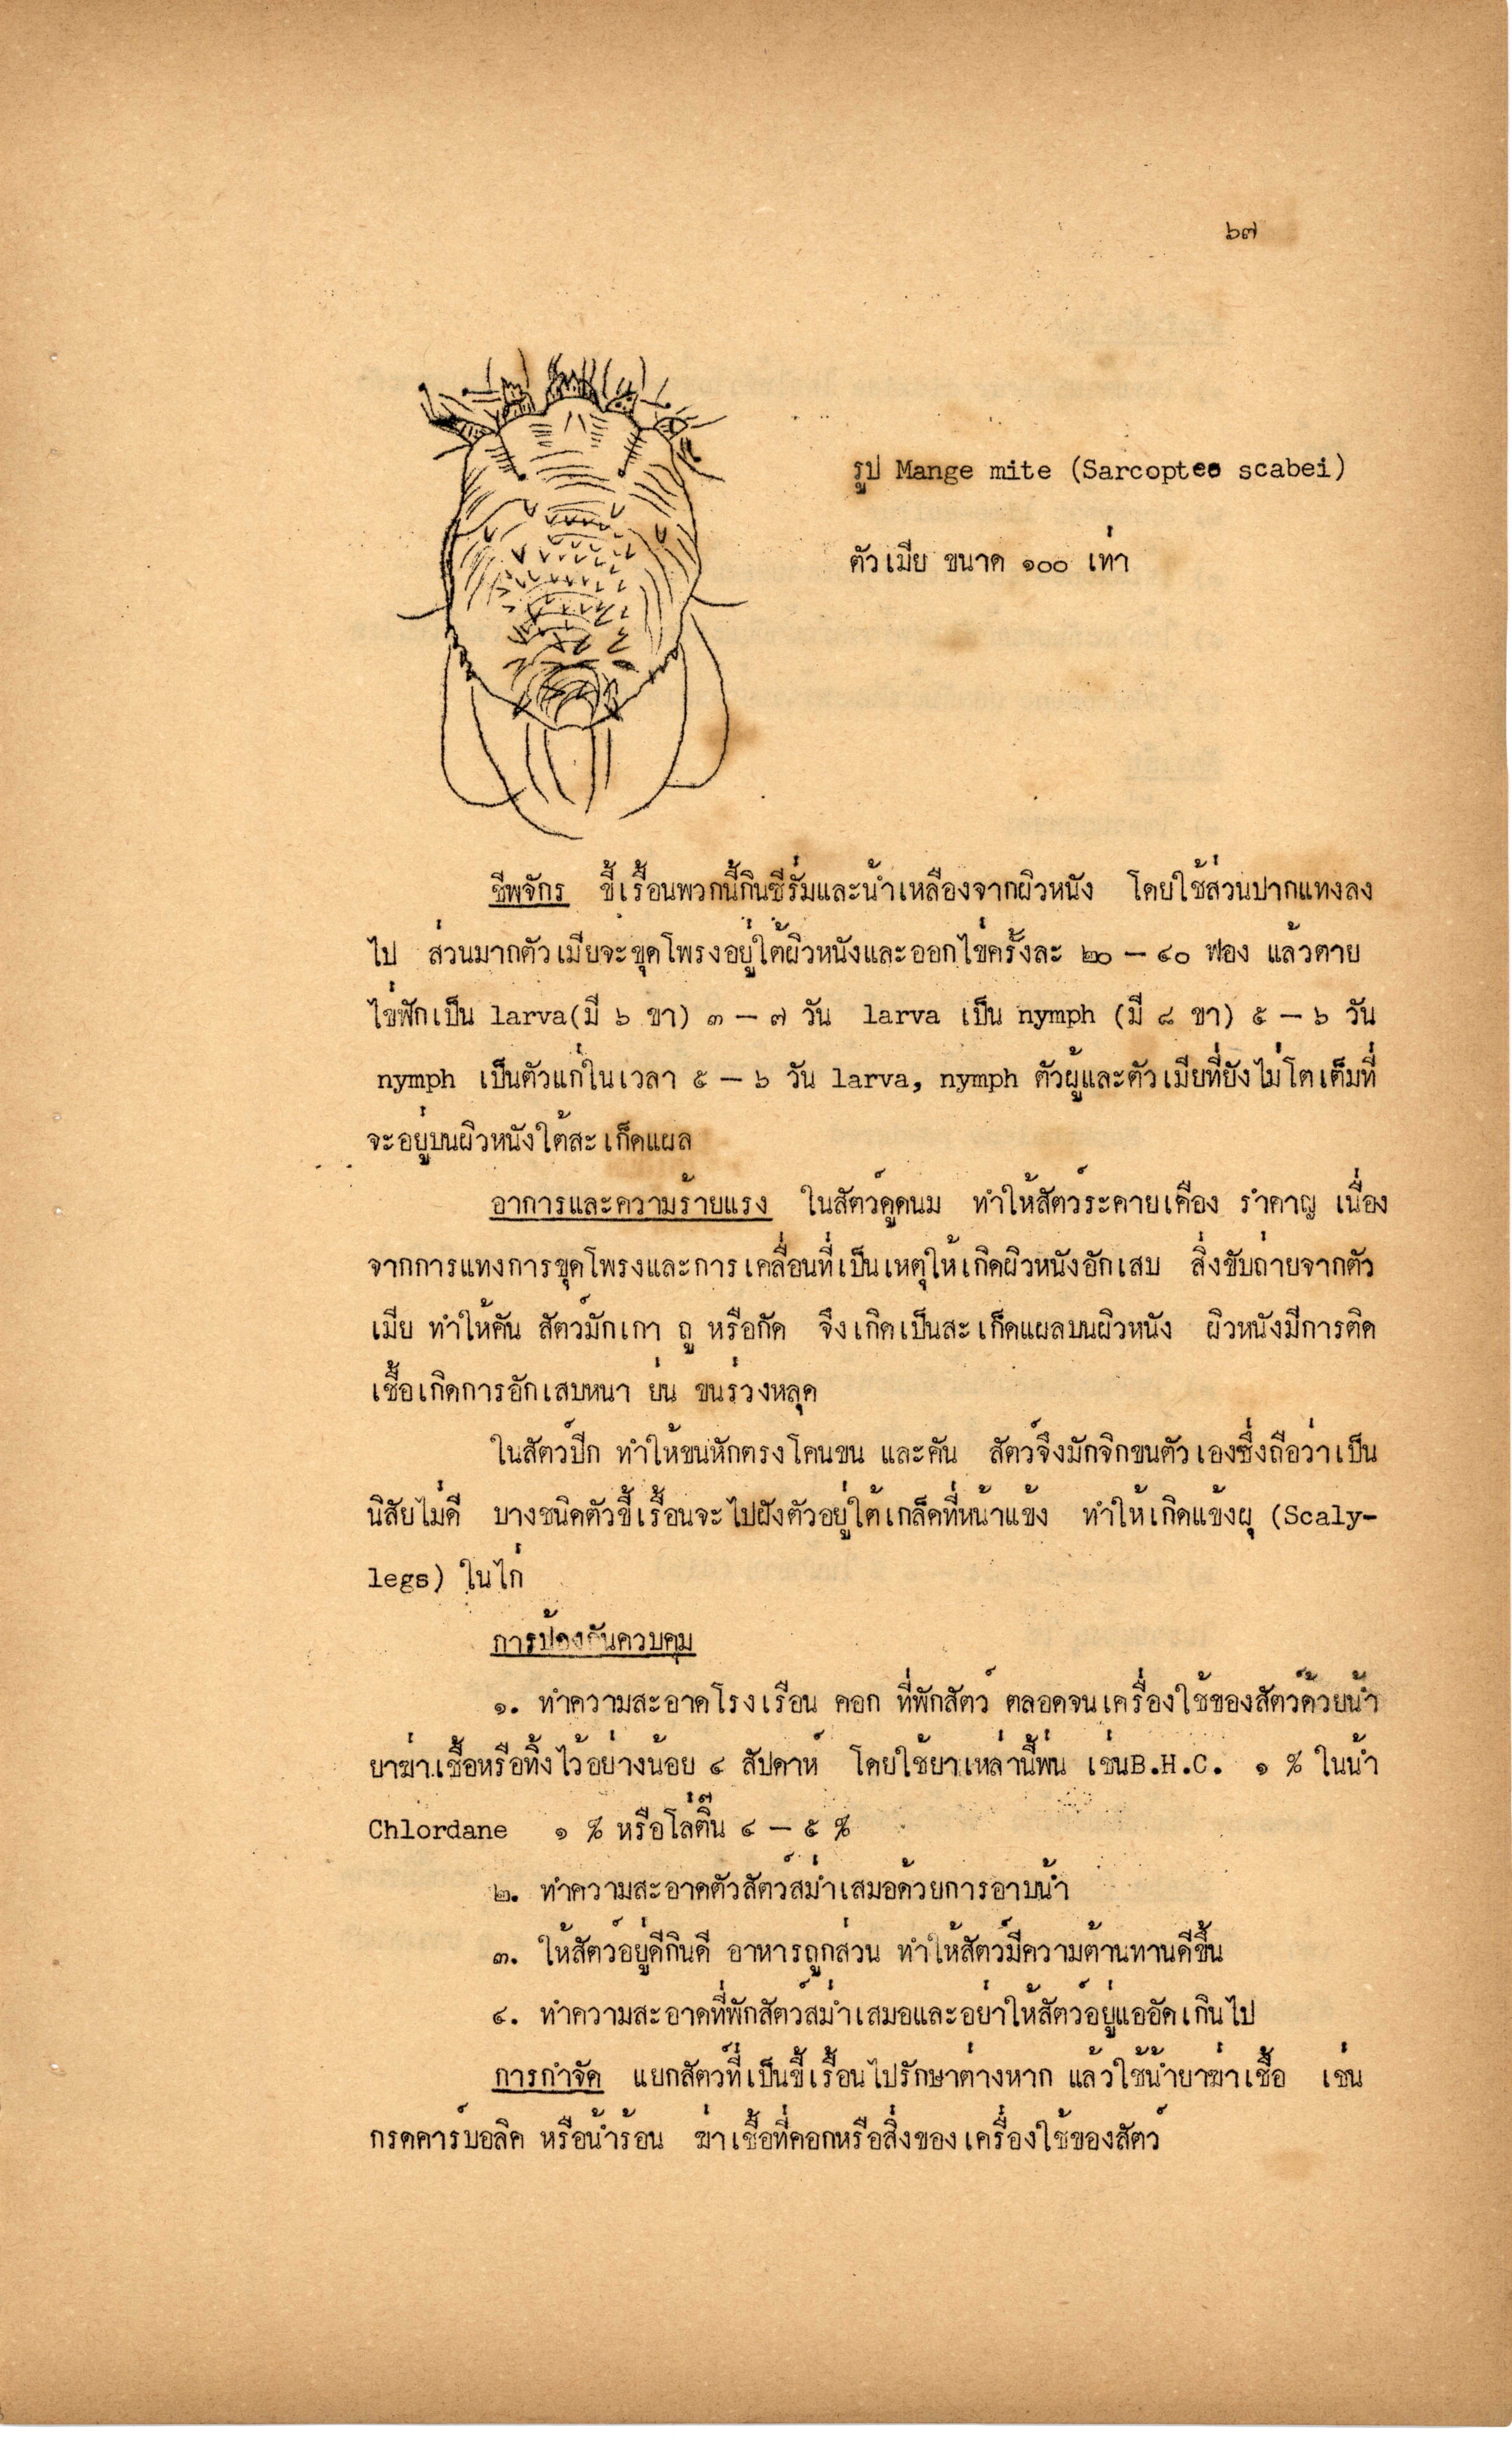 ๖๗
รูป Mange mite (Sarcoptes scabei)
ตัวเมีย ขนาด ๑๐๐ เท่า
ชีพจักร ขี้เรื้อนพวกนี้กินซีรั่มและน้ำเหลืองจากผิวหนัง โดยใช้ส่วนปากแทงลง
ไป ส่วนมากตัวเมียจะขุดโพรงอยู่ใต้ผิวหนังและออกไข่ครั้งละ ๒๐ – ๔๐ ฟอง แล้วตาย
ไข่ฟักเป็น larva(มี ๖ ขา) ๓ – ๗ วัน larva เป็น nymph (มี ๘ ขา) ๕ – ๖ วัน
nymph เป็นตัวแก่ในเวลา ๕ – ๖ วัน larva, nymph ตัวผู้และตัวเมียที่ยังไม่โตเต็มที่
จะอยู่บนผิวหนังใต้สะเก็ดแผล
อาการและความร้ายแรง ในสัตว์ดูดนม ทำให้สัตว์ระคายเคือง รำคาญ เนื่อง
จากการแทงการขุดโพรงและการเคลื่อนที่เป็นเหตุให้เกิดผิวหนังอักเสบ สิ่งขับถ่ายจากตัว
เมีย ทำให้คัน สัตว์มักเกา ถู หรือกัด จึงเกิดเป็นสะเก็ดแผลบนผิวหนัง ผิวหนังมีการติด
เชื้อเกิดการอักเสบหนา ย่น ขนร่วงหลุด
ในสัตว์ปีก ทำให้ขนหักตรงโคนขน และคัน สัตว์จึงมักจิกขนตัวเองซึ่งถือว่าเป็น
นิสัยไม่ดี บางชนิดตัวขี้เรื้อนจะไปฝังตัวอยู่ใต้เกล็ดที่หน้าแข้ง ทำให้เกิดแข้งผุ (Scaly-
legs) ในไก่
การป้องกันควบคุม
๑. ทำความสะอาดโรงเรือน คอก ที่พักสัตว์ ตลอดจนเครื่องใช้ของสัตว์ด้วยน้ำ
ยาฆ่าเชื้อหรือทิ้งไว้อย่างน้อย ๔ สัปดาห์ โดยใช้ยาเหล่านี้พ่น เช่นB.H.C. ๑ % ในน้ำ
Chlordane ๑ % หรือโล่ติ๊น ๔ – ๕ %
๒. ทำความสะอาดตัวสัตว์สม่ำเสมอด้วยการอาบน้ำ
๓. ให้สัตว์อยู่ดีกินดี อาหารถูกส่วน ทำให้สัตว์มีความต้านทานดีขึ้น
๔. ทำความสะอาดที่พักสัตว์สม่ำเสมอและอย่าให้สัตว์อยู่แออัดเกินไป
การกำจัด แยกสัตว์ที่เป็นขี้เรื้อนไปรักษาต่างหาก แล้วใช้น้ำยาฆ่าเชื้อ เช่น
กรดคาร์บอลิค หรือน้ำร้อน ฆ่าเชื้อที่คอกหรือสิ่งของเครื่องใช้ของสัตว์